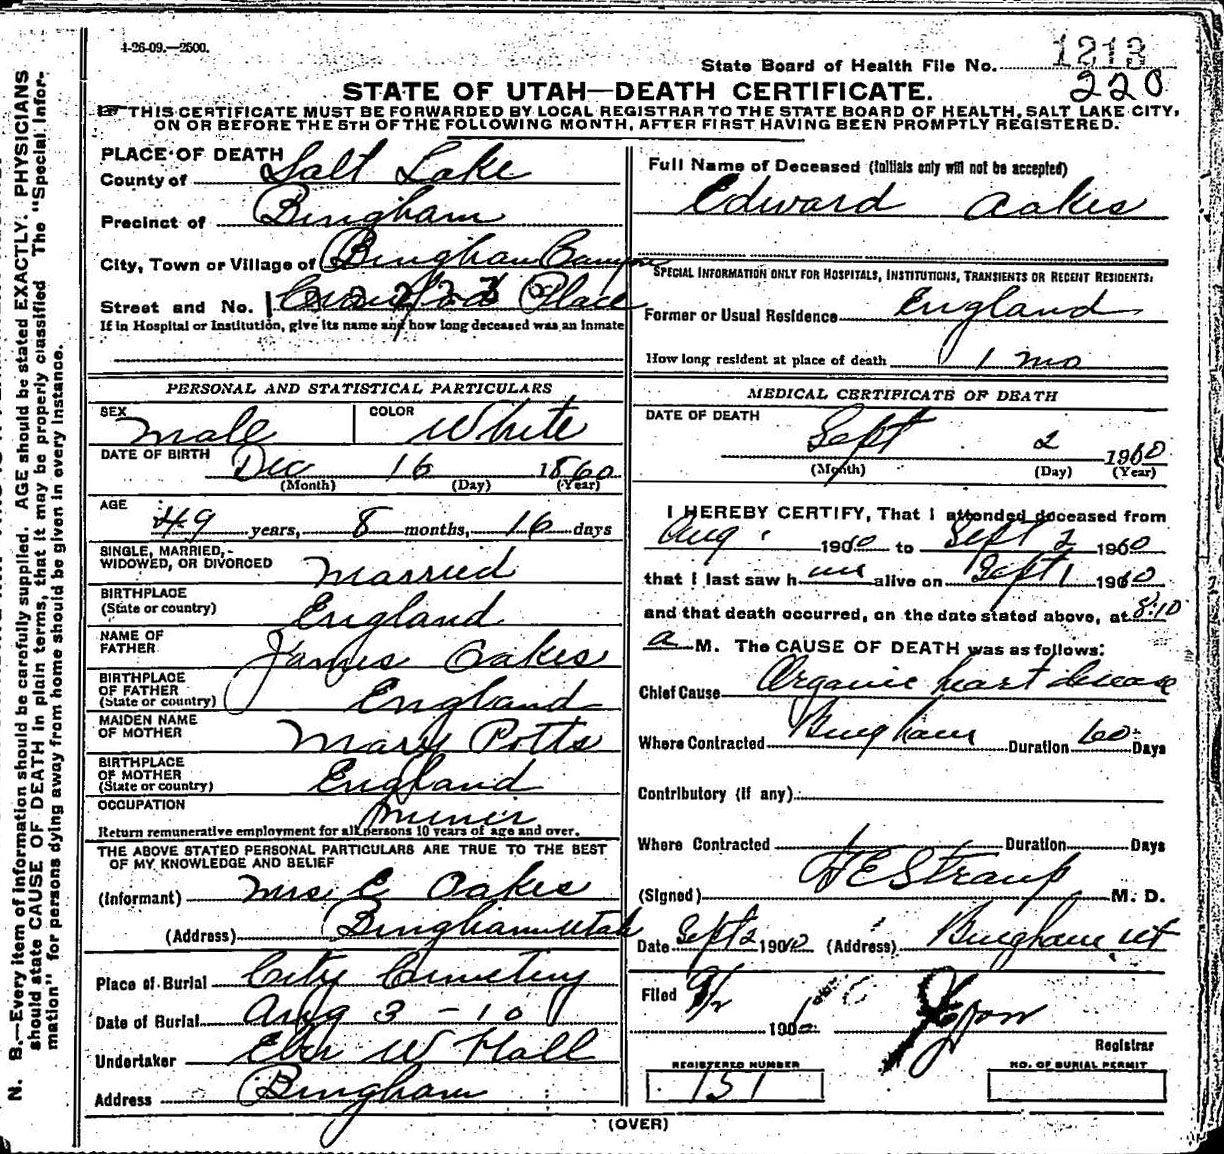 1-26-09.—2500.
1213
State Board of Health File No.
220
STATE OF UTAH—DEATH CERTIFICATE.
THIS CERTIFICATE MUST BE FORWARDED BY LOCAL REGISTRAR TO THE STATE BOARD OF HEALTH, SALT LAKE CITY,
ON OR BEFORE THE 5TH OF THE FOLLOWING MONTH, AFTER FIRST HAVING BEEN PROMPTLY REGISTERED.
PLACE OF DEATH
County of Salt Lake
Precinct of Bingham
City, Town or Village of Bingham Canyon
Street and No. Place
If in Hospital or Institution, give its name and how long deceased was an inmate
Full Name of Deceased (Initials only will not be accepted)
Edward Oakes
SPECIAL INFORMATION ONLY FOR HOSPITALS, INSTITUTIONS, TRANSIENTS OR RECENT RESIDENTS:
Former or Usual Residence England
How long resident at place of death 1 mo
PERSONAL AND STATISTICAL PARTICULARS
SEX Male COLOR White
DATE OF BIRTH Dec 16 1860
(Month) (Day) (Year)
AGE
49 years, 8 months, 16 days
SINGLE, MARRIED,
WIDOWED, OR DIVORCED Married
BIRTHPLACE
(State or country) England
NAME OF
FATHER James Oakes
BIRTHPLACE
OF FATHER
(State or country) England
MAIDEN NAME
OF MOTHER Mary Potts
BIRTHPLACE
OF MOTHER
(State or country) England
OCCUPATION Miner
Return remunerative employment for all persons 10 years of age and over.
THE ABOVE STATED PERSONAL PARTICULARS ARE TRUE TO THE BEST
OF MY KNOWLEDGE AND BELIEF
(Informant) Mrs E Oakes
(Address) Bingham Utah
Place of Burial City Cemetery
Date of Burial Aug 3 - 10
Undertaker Eber W Hall
Address Bingham
MEDICAL CERTIFICATE OF DEATH
DATE OF DEATH
Sept 2 1910
(Month) (Day) (Year)
I HEREBY CERTIFY, That I attended deceased from
Aug 1910 to Sept 2 1910
that I last saw him alive on Sept 1 1910
and that death occurred, on the date stated above, at 8:10
a M. The CAUSE OF DEATH was as follows:
Chief Cause Organic heart disease
Where Contracted Bingham Duration 60 Days
Contributory (if any)
Where Contracted Duration Days
(Signed) F E Straup M. D.
Date Sept 2 1910 (Address) Bingham Ut
Filed 9/2 190
Registrar
REGISTERED NUMBER
151
NO. OF BURIAL PERMIT
(OVER)
N. B.—Every item of information should be carefully supplied. AGE should be stated EXACTLY. PHYSICIANS
should state CAUSE OF DEATH in plain terms, that it may be properly classified The "Special Infor-
mation" for persons dying away from home should be given in every instance.